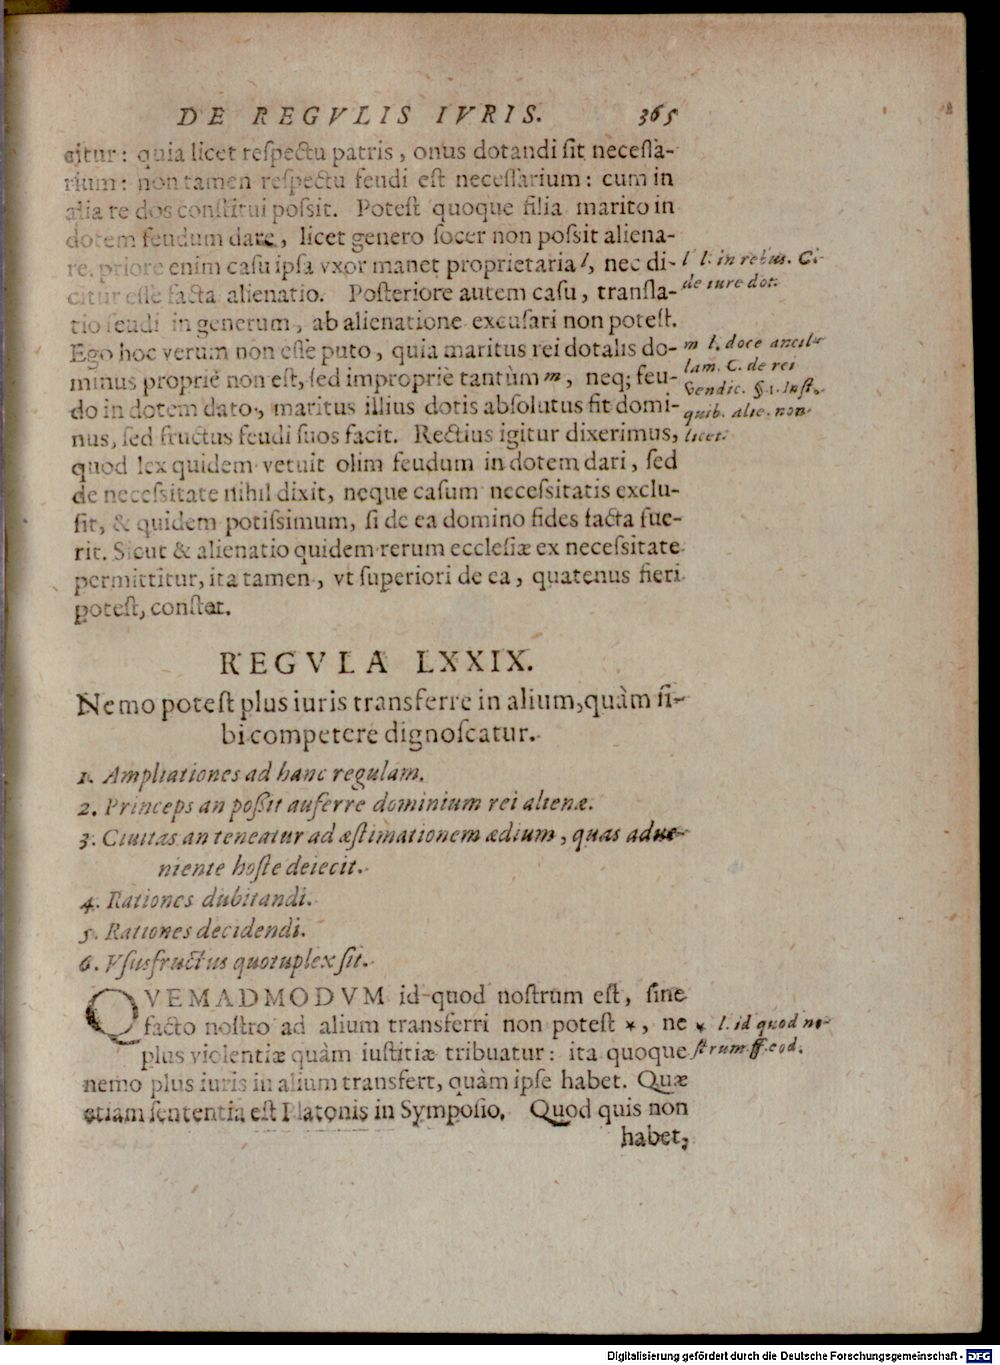 DE REGVLIS IVRIS. 365
citur: quia licet respectu patris, onus dotandi sit necessa-
rium: non tamen respectu feudi est necessarium: cum in
alia re dos constitui possit. Potest quoque filia marito in
dotem feudum dare, licet genero socer non possit aliena-
re. priore enim casu ipsa vxor manet proprietaria l, nec di-
citur esse facta alienatio. Posteriore autem casu, transla-
tio feudi in generum, ab alienatione excusari non potest.
Ego hoc verum non esse puto, quia maritus rei dotalis do-
minus propriè non est, sed impropriè tantùm m, neq; feu-
do in dotem dato, maritus illius dotis absolutus fit domi-
nus, sed fructus feudi suos facit. Rectius igitur dixerimus,
quod lex quidem vetuit olim feudum in dotem dari, sed
de necessitate nihil dixit, neque casum necessitatis exclu-
sit, & quidem potissimum, si de ea domino fides facta fue-
rit. Sicut & alienatio quidem rerum ecclesiæ ex necessitate
permittitur, ita tamen, vt superiori de ea, quatenus fieri
potest, constet.
l l. in rebus. C.
de iure dot.
m l. doce ancil-
lam. C. de rei
vendic. §. 1. Inst.
quib. alie. non
licet.
REGVLA LXXIX.
Nemo potest plus iuris transferre in alium, quàm si-
bi competere dignoscatur.
1. Ampliationes ad hanc regulam.
2. Princeps an possit auferre dominium rei alienæ.
3. Ciuitas an teneatur ad æstimationem ædium, quas adue-
niente hoste deiecit.
4. Rationes dubitandi.
5. Rationes decidendi.
6. Vsusfructus quotuplex sit.
QVEMADMODVM id quod nostrum est, sine
facto nostro ad alium transferri non potest *, ne
plus violentiæ quàm iustitiæ tribuatur: ita quoque
nemo plus iuris in alium transfert, quàm ipse habet. Quæ
etiam sententia est Platonis in Symposio. Quod quis non
habet,
* l. id quod no-
strum. ff. eod.
Digitalisierung gefördert durch die Deutsche Forschungsgemeinschaft - DFG